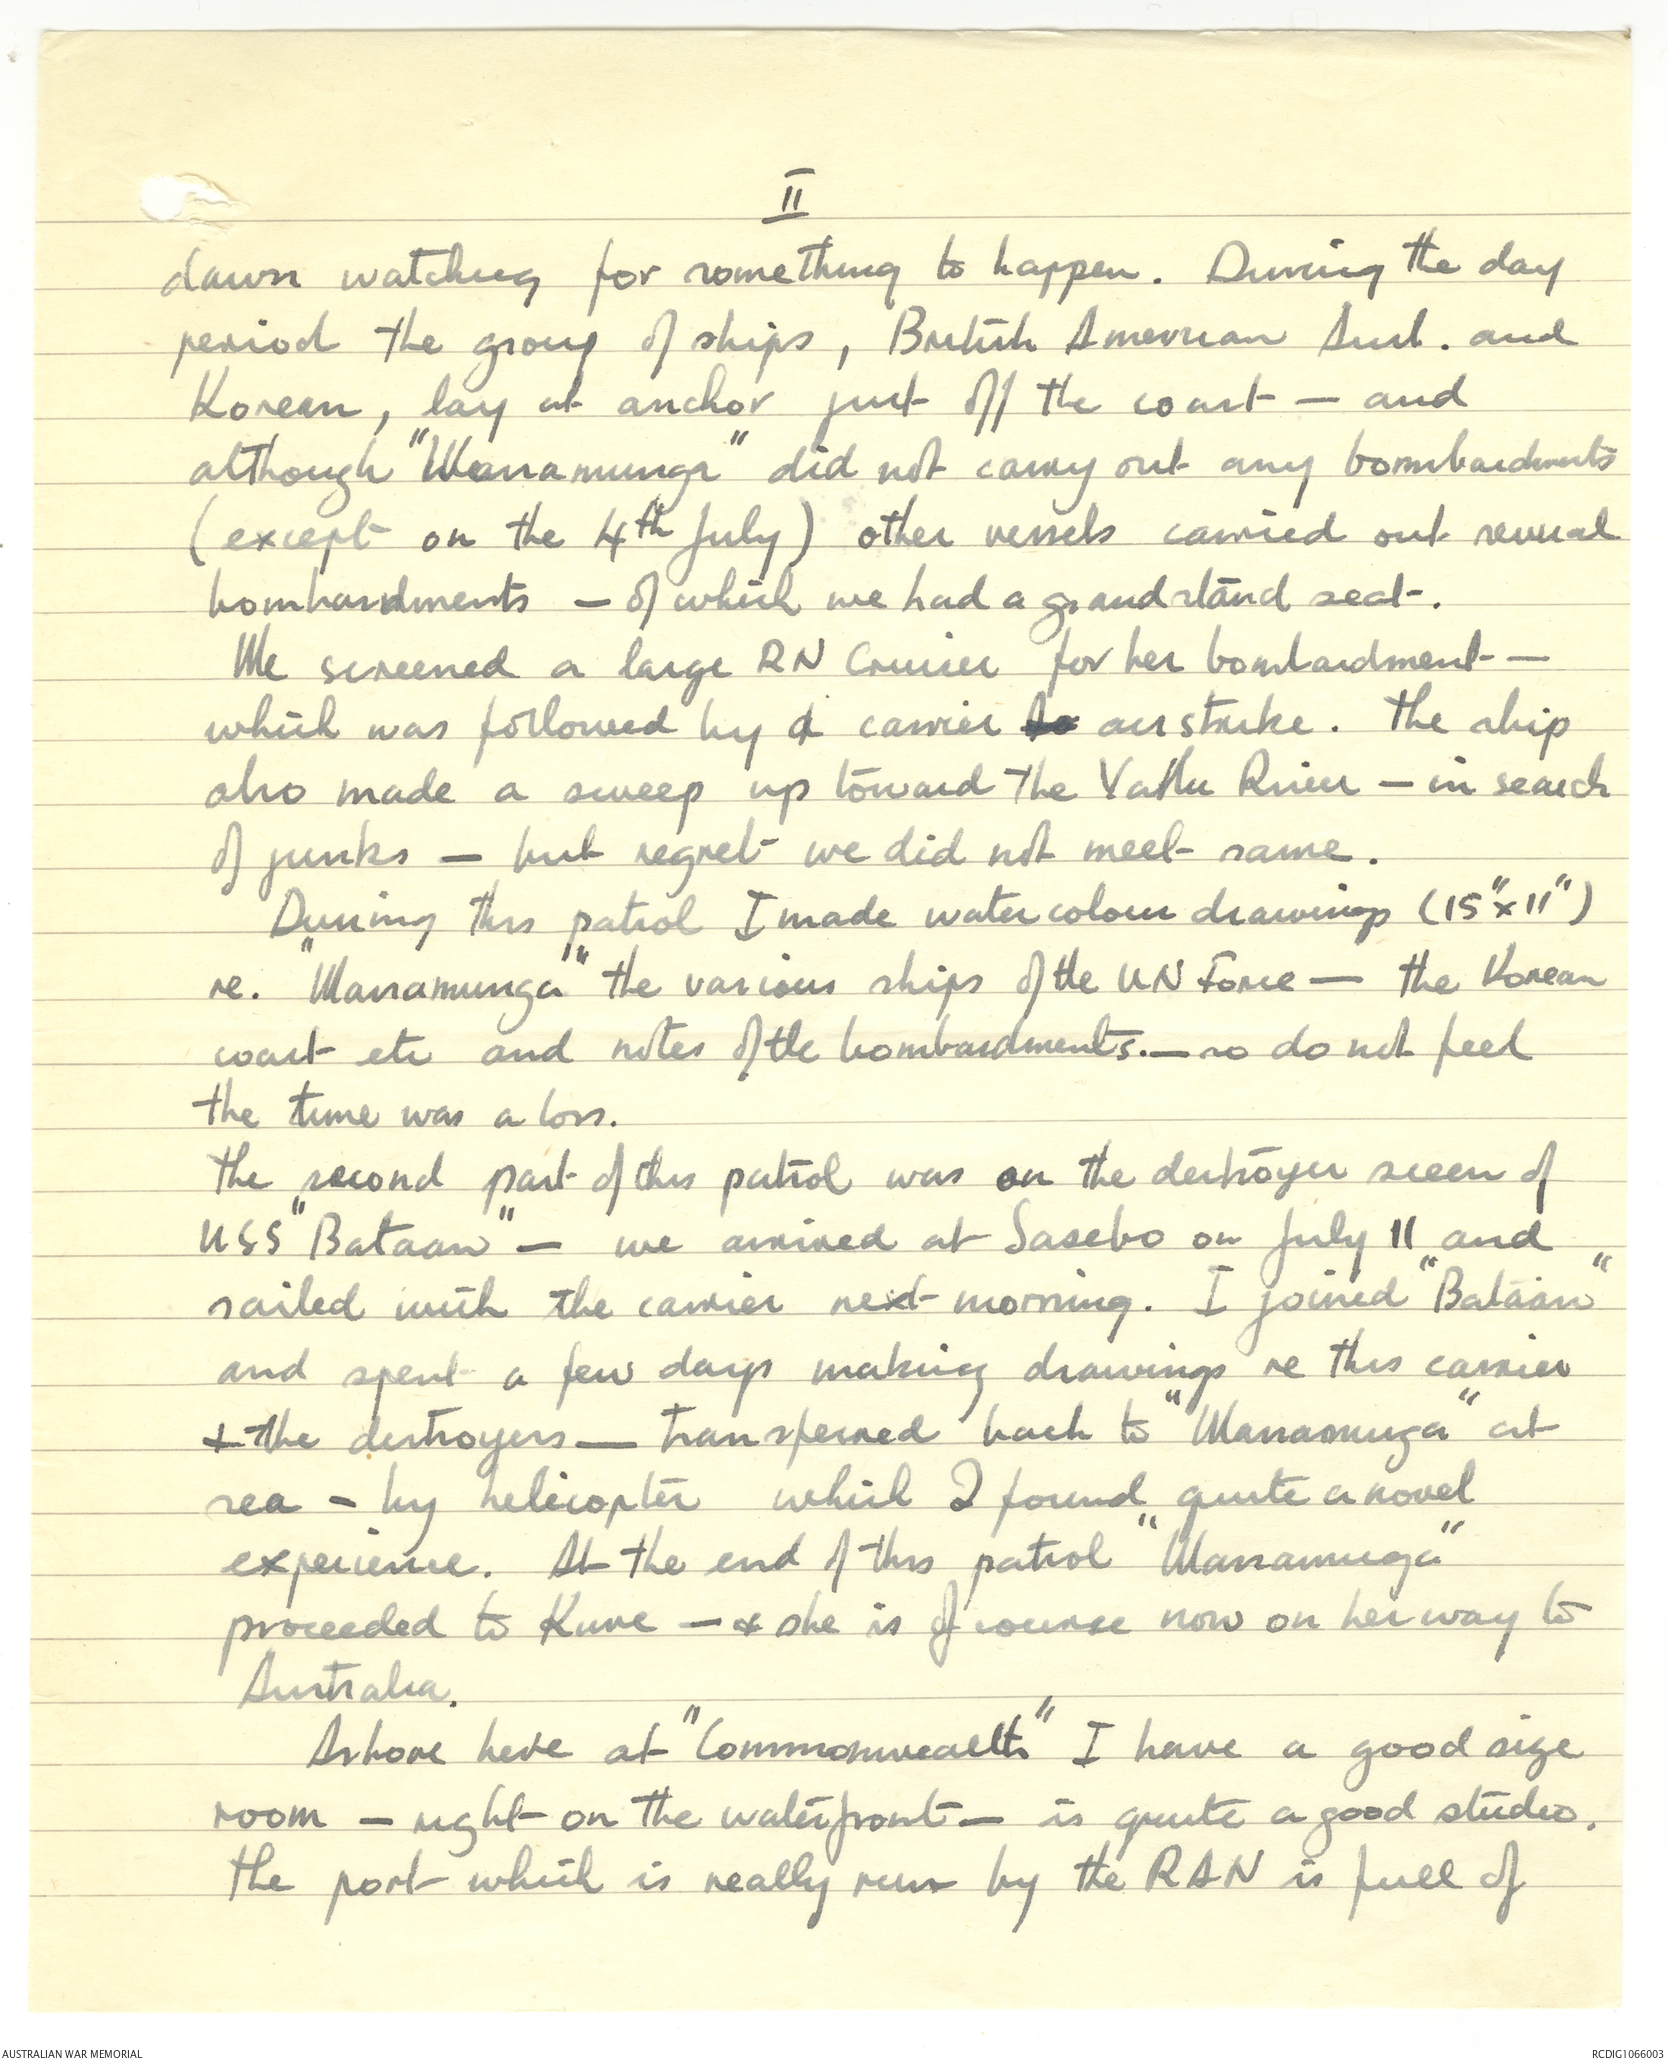 II
dawn watching for something to happen. During the day
period the group of ships, British American Aust. and
Korean, lay at anchor just off the coast — and
although "Warramunga" did not carry out any bombardments
(except on the 4th July) other vessels carried out several
bombardments — of which we had a grandstand seat.
We screened a large RN Cruiser for her bombardment —
which was followed by a carrier air strike. The ship
also made a sweep up toward the Yallu River — in search
of junks — but regret we did not meet same.
During this patrol I made water colour drawings (15"x11")
re. "Warramunga" the various ships of the UN Force — the Korean
coast etc and notes of the bombardments. — so do not feel
the time was a loss.
The second part of this patrol was on the destroyer sceen of
USS "Bataan" — we arrived at Sasebo on July 11 and
sailed with the carrier next morning. I joined "Bataan"
and spent a few days making drawings re this carrier
+ the destroyers — transferred back to "Warramuga" at
sea - by helicopter which I found quite a novel
experience. At the end of this patrol "Warramuga"
proceeded to Kure — + she is of course now on her way to
Australia.
Ashore here at "Commonwealth" I have a good size
room — right on the waterfront — is quite a good studio.
The port which is really run by the RAN is full of
AUSTRALIAN WAR MEMORIAL
RCDIG1066003